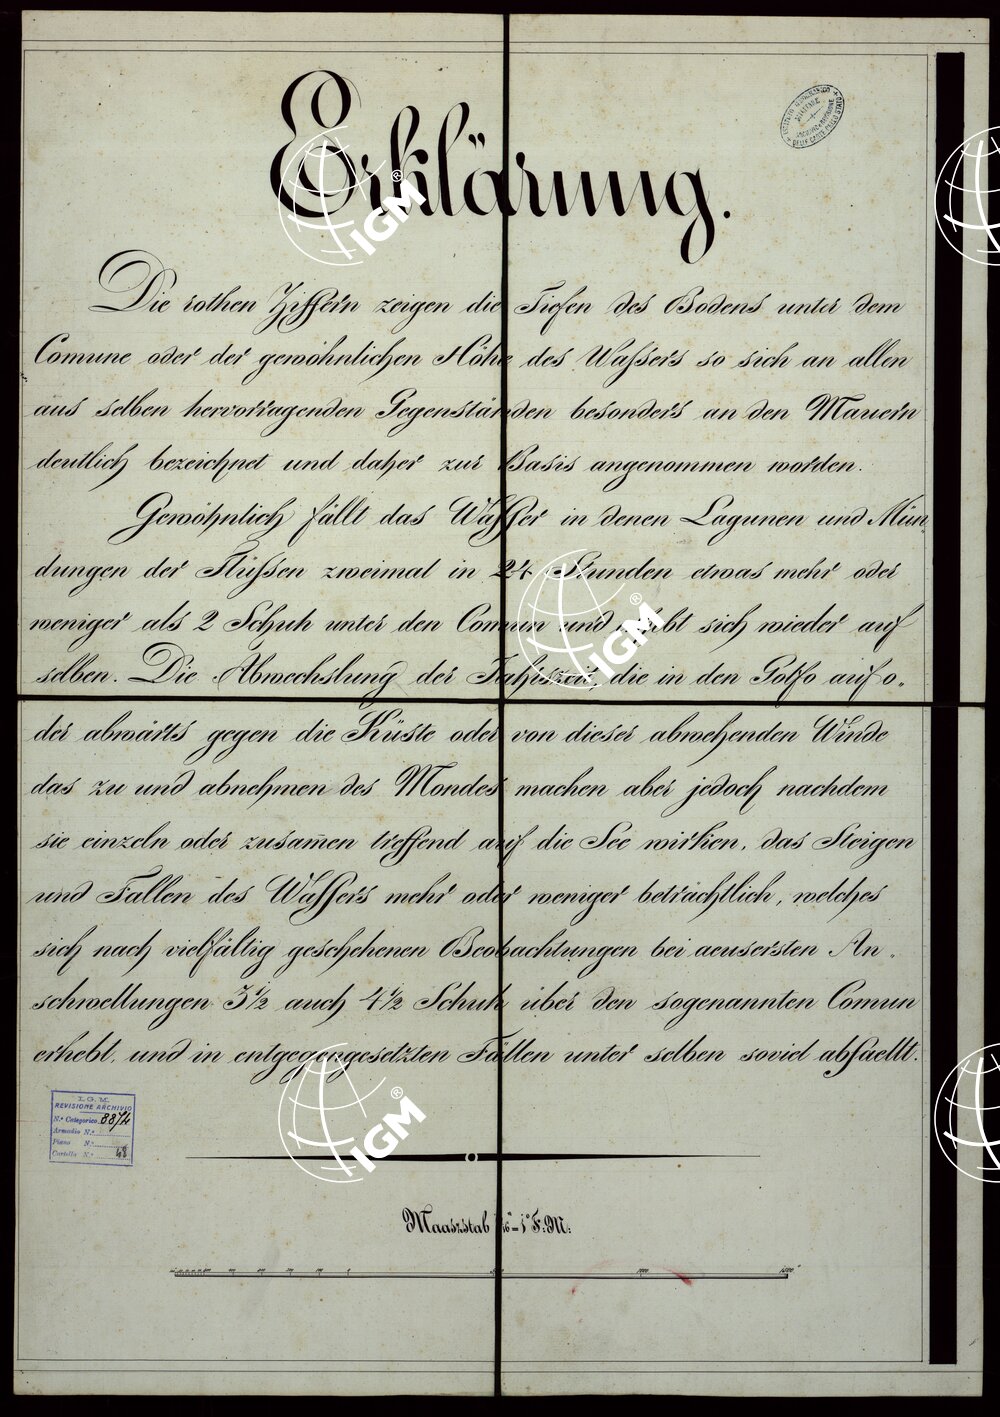 Erklärung.
Die rothen Ziffern zeigen die Tiefen des Bodens unter dem
Comune oder der gewöhnlichen Höhe des Wassers so sich an allen
aus selben hervorragenden Gegenständen besonders an den Mauern
deutlich bezeichnet und daher zur Basis angenommen worden.
Gewöhnlich fällt das Wasser in denen Lagunen und Mün
dungen der Flüssen zweimal in 24 Stunden etwas mehr oder
weniger als 2 Schuh unter den Comun und hebt sich wieder auf
selben. Die Abwechslung der Jahrszeit, die in den Golfo auf o„
der abwärts gegen die Küste oder von dieser abwehenden Winde
das zu und abnehmen des Mondes machen aber jedoch nachdem
sie einzeln oder zusam̄en treffend auf die See wirken, das Steigen
und Fallen des Wassers mehr oder weniger beträchtlich, welches
sich nach vielfältig geschehenen Beobachtungen bei aeusersten An„
schwellungen 3½ auch 4½ Schuh über den sogenannten Comun
erhebt, und in entgegengesetzten Fällen unter selben soviel abfaellt.
I. G. M.
REVISIONE ARCHIVIO
N.º Categorico 88/4
Armadio N.º
Piano N.º
Cartella N.º 48
Maaszstab = 1° F: M:
1000
1500
IGM®
IGM®
IGM®